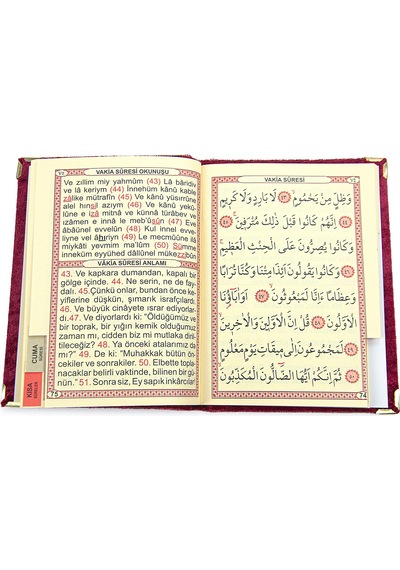 VAKİA SÛRESİ OKUNUŞU
Ve zıllim miy yahmûm (43) Lâ bâridiv
ve lâ keriym (44) İnnehüm kânû kable
zâlike mütrafîn (45) Ve kânû yusırrûne
alel hınsil aziym (46) Ve kânû yekû-
lûne e izâ mitnâ ve künnâ türâbev ve
ızâmen e innâ le meb'ûsûn (47) Eve
âbâünel evvelûn (48) Kul innel evve-
liyne vel âhıriyn (49) Le mecmûûne ilâ
miykâti yevmim ma'lûm (50) Sümme
inneküm eyyühed dâllûnel mükezzibûn
VÂKİA SÛRESİ ANLAMI
43. Ve kapkara dumandan, kapalı bir
gölge içinde. 44. Ne serin, ne de fay-
dalı. 45.Çünkü onlar, bundan önce ke-
yiflerine düşkün, şımarık israfçılardı.
46. Ve büyük cinâyete ısrar ediyorlar-
dı. 47. Ve diyorlardı ki: "Öldüğümüz ve
bir toprak, bir yığın kemik olduğumuz
zaman mı, cidden biz mi mutlaka diril-
tileceğiz? 48. Ya önceki atalarımız da
mı?" 49. De ki: "Muhakkak bütün ön-
cekiler ve sonrakiler. 50. Elbette topla-
nacaklar belirli vaktinde, bilinen bir gü-
nün." 51. Sonra siz, Ey sapık inkârcılar!
75
CUMA
KISA
SURELER
VAKİA SÛRESİ
وَظِلٍّ مِنْ يَحْمُومٍ ﴿٤٣﴾ لَا بَارِدٍ وَلَا كَرِيمٍ
﴿٤٤﴾ اِنَّهُمْ كَانُوا قَبْلَ ذٰلِكَ مُتْرَفِينَ ﴿٤٥﴾
وَكَانُوا يُصِرُّونَ عَلَى الْحِنْثِ الْعَظِيمِ ﴿٤٦﴾
وَكَانُوا يَقُولُونَ اَئِذَا مِتْنَا وَكُنَّا تُرَابًا
وَعِظَامًا ءَاِنَّا لَمَبْعُوثُونَ ﴿٤٧﴾ اَوَاٰبَاؤُنَا
الْاَوَّلُونَ ﴿٤٨﴾ قُلْ اِنَّ الْاَوَّلِينَ وَالْاٰخِرِينَ
﴿٤٩﴾ لَمَجْمُوعُونَ اِلٰى مِيقَاتِ يَوْمٍ مَعْلُومٍ
﴿٥٠﴾ ثُمَّ اِنَّكُمْ اَيُّهَا الضَّالُّونَ الْمُكَذِّبُونَ
74